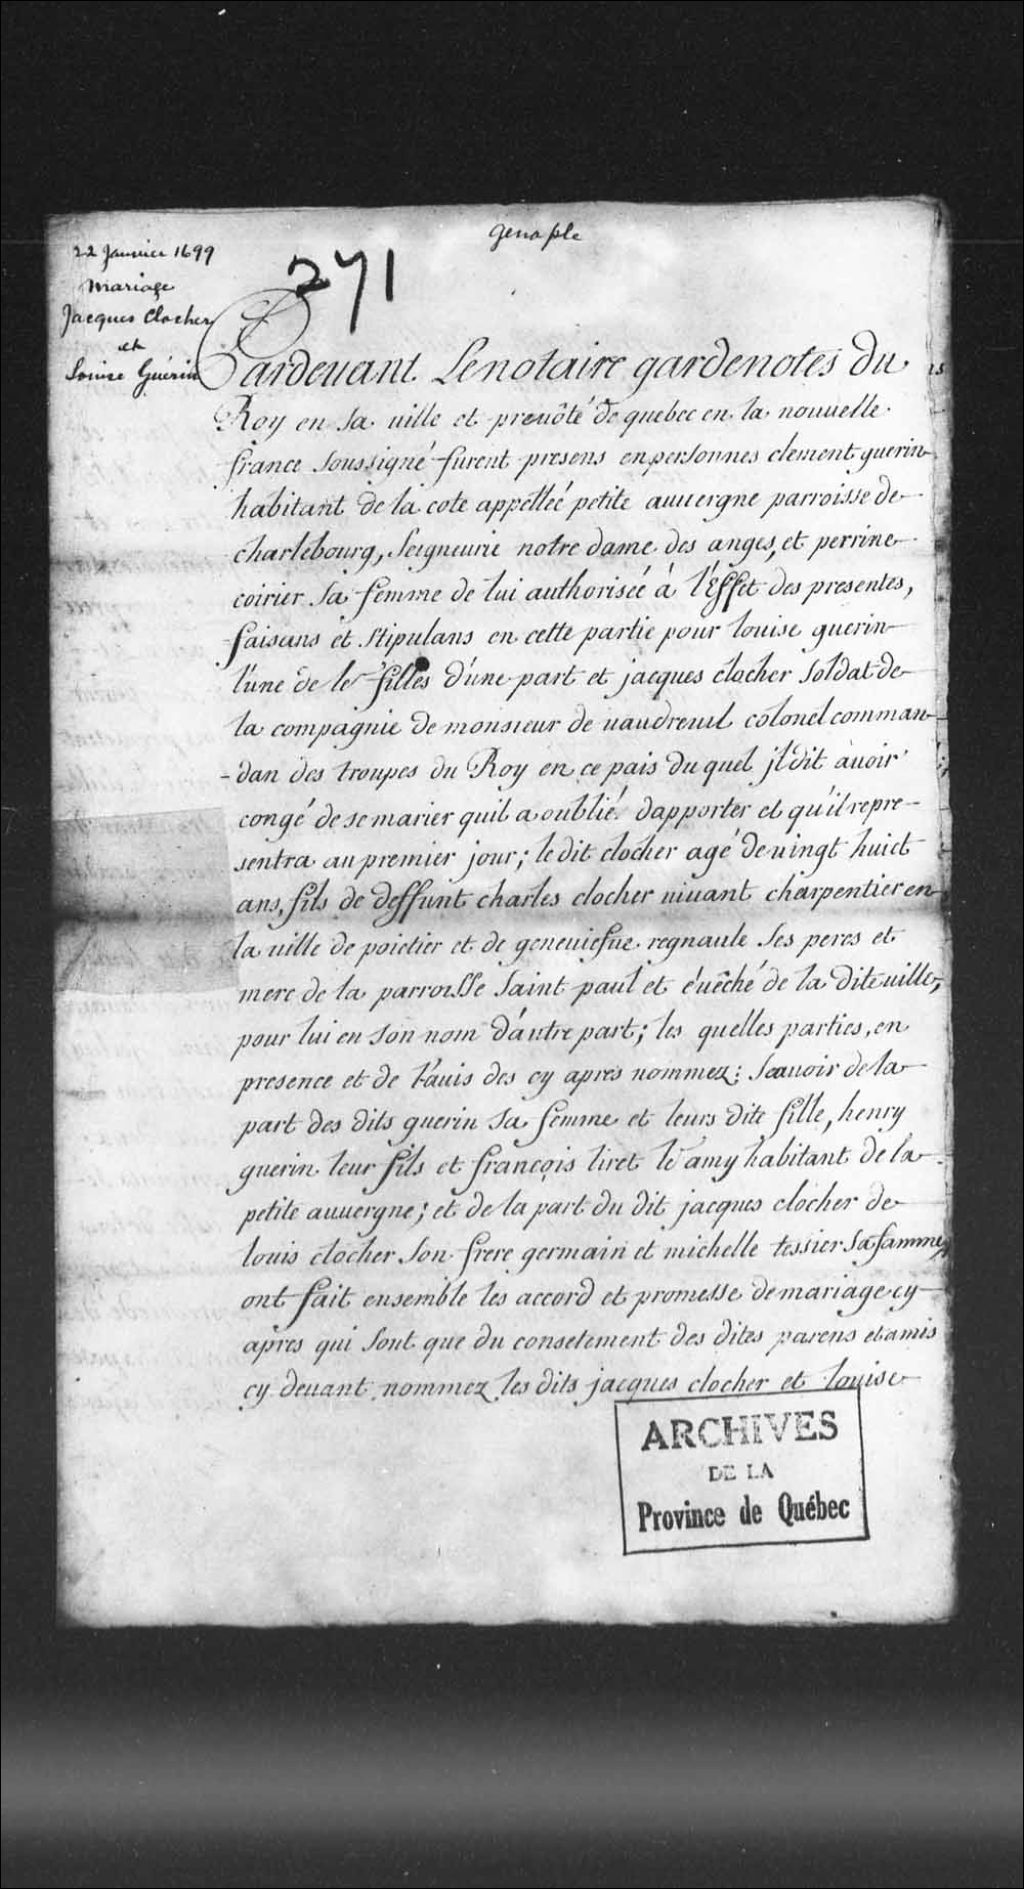 genaple
22 Janvier 1699
Mariage
Jacques Clocher
et
Louise Guérin
271
Pardeuant Le notaire gardenotes du
Roy en sa uille et preuôté de quebec en la nouuelle
france soussigné furent presens en personnes clement guerin
habitant de la cote appelleé petite auuergne parroisse de
charlebourg, seigneurie notre dame des anges, et perrine
coirier sa femme de lui authoriseé à l'effet des presentes,
faisans et stipulans en cette partie pour louise guerin
l'une de les filles d'une part et jacques clocher soldat de
la compagnie de monsieur de uaudreuil colonel comman
-dan des troupes du Roy en ce pais du quel jl dit auoir
congé de se marier quil a oublié dapporter et qu'il repre-
sentra au premier jour; le dit clocher agé de uingt huict
ans, fils de deffunt charles clocher uiuant charpentier en
la uille de poictier et de geneuiefue regnault ses peres et
mere de la parroisse saint paul et éuêché de la dite uille,
pour lui en son nom d'autre part; les quelles parties, en
presence et de l'auis des cy apres nommez: scauoir de la
part des dits guerin sa femme et leurs dite fille, henry
guerin leur fils et françois liret le amy habitant de la
petite auuergne; et de la part du dit jacques clocher de
louis clocher son frere germain et michelle tessier sa famme,
ont fait ensemble les accord et promesse de mariage cy
apres qui sont que du consetement des dites parens et amis
cy deuant nommez les dits jacques clocher et louise
ARCHIVES
DE LA
Province de Québec